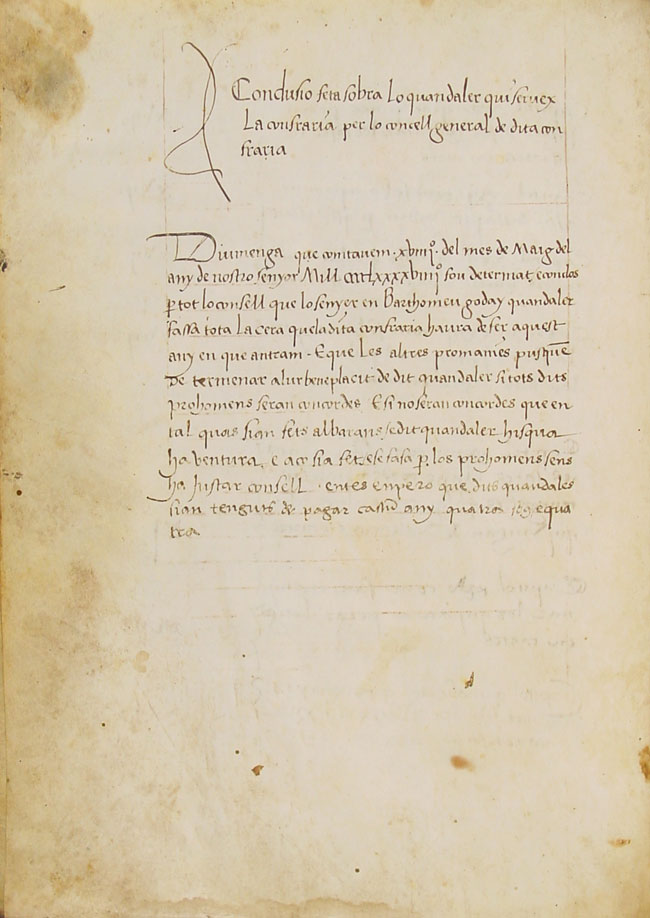 Conclusio feta sobra lo quandaler qui servex
La confraria per lo concell general de dita con
fraria
Diumenga que comtavem .xviiii°. del mes de Maig del
any de nostro senyor Mill ccccLxxxxviiii° fon determat e conclos
p tot lo consell que lo senyer en Barthomeu goday quandaler
fassa tota la cera que la dita confraria haura de fer aquest
any en que antram . E que les altres promanies pusquē
de termenar a lur beneplacit de dit quandaler si tots dits
prohomens seran concordes E si no seran concordes que en
tal quas sian fets albarans se dit quandaler hisqua
ha ventura e aço sia fet e se fasa p los prohomens sens
ha Justar consell . entes empero que dits quandales
sian tenguts de pagar cascū any quatra e qua
tra